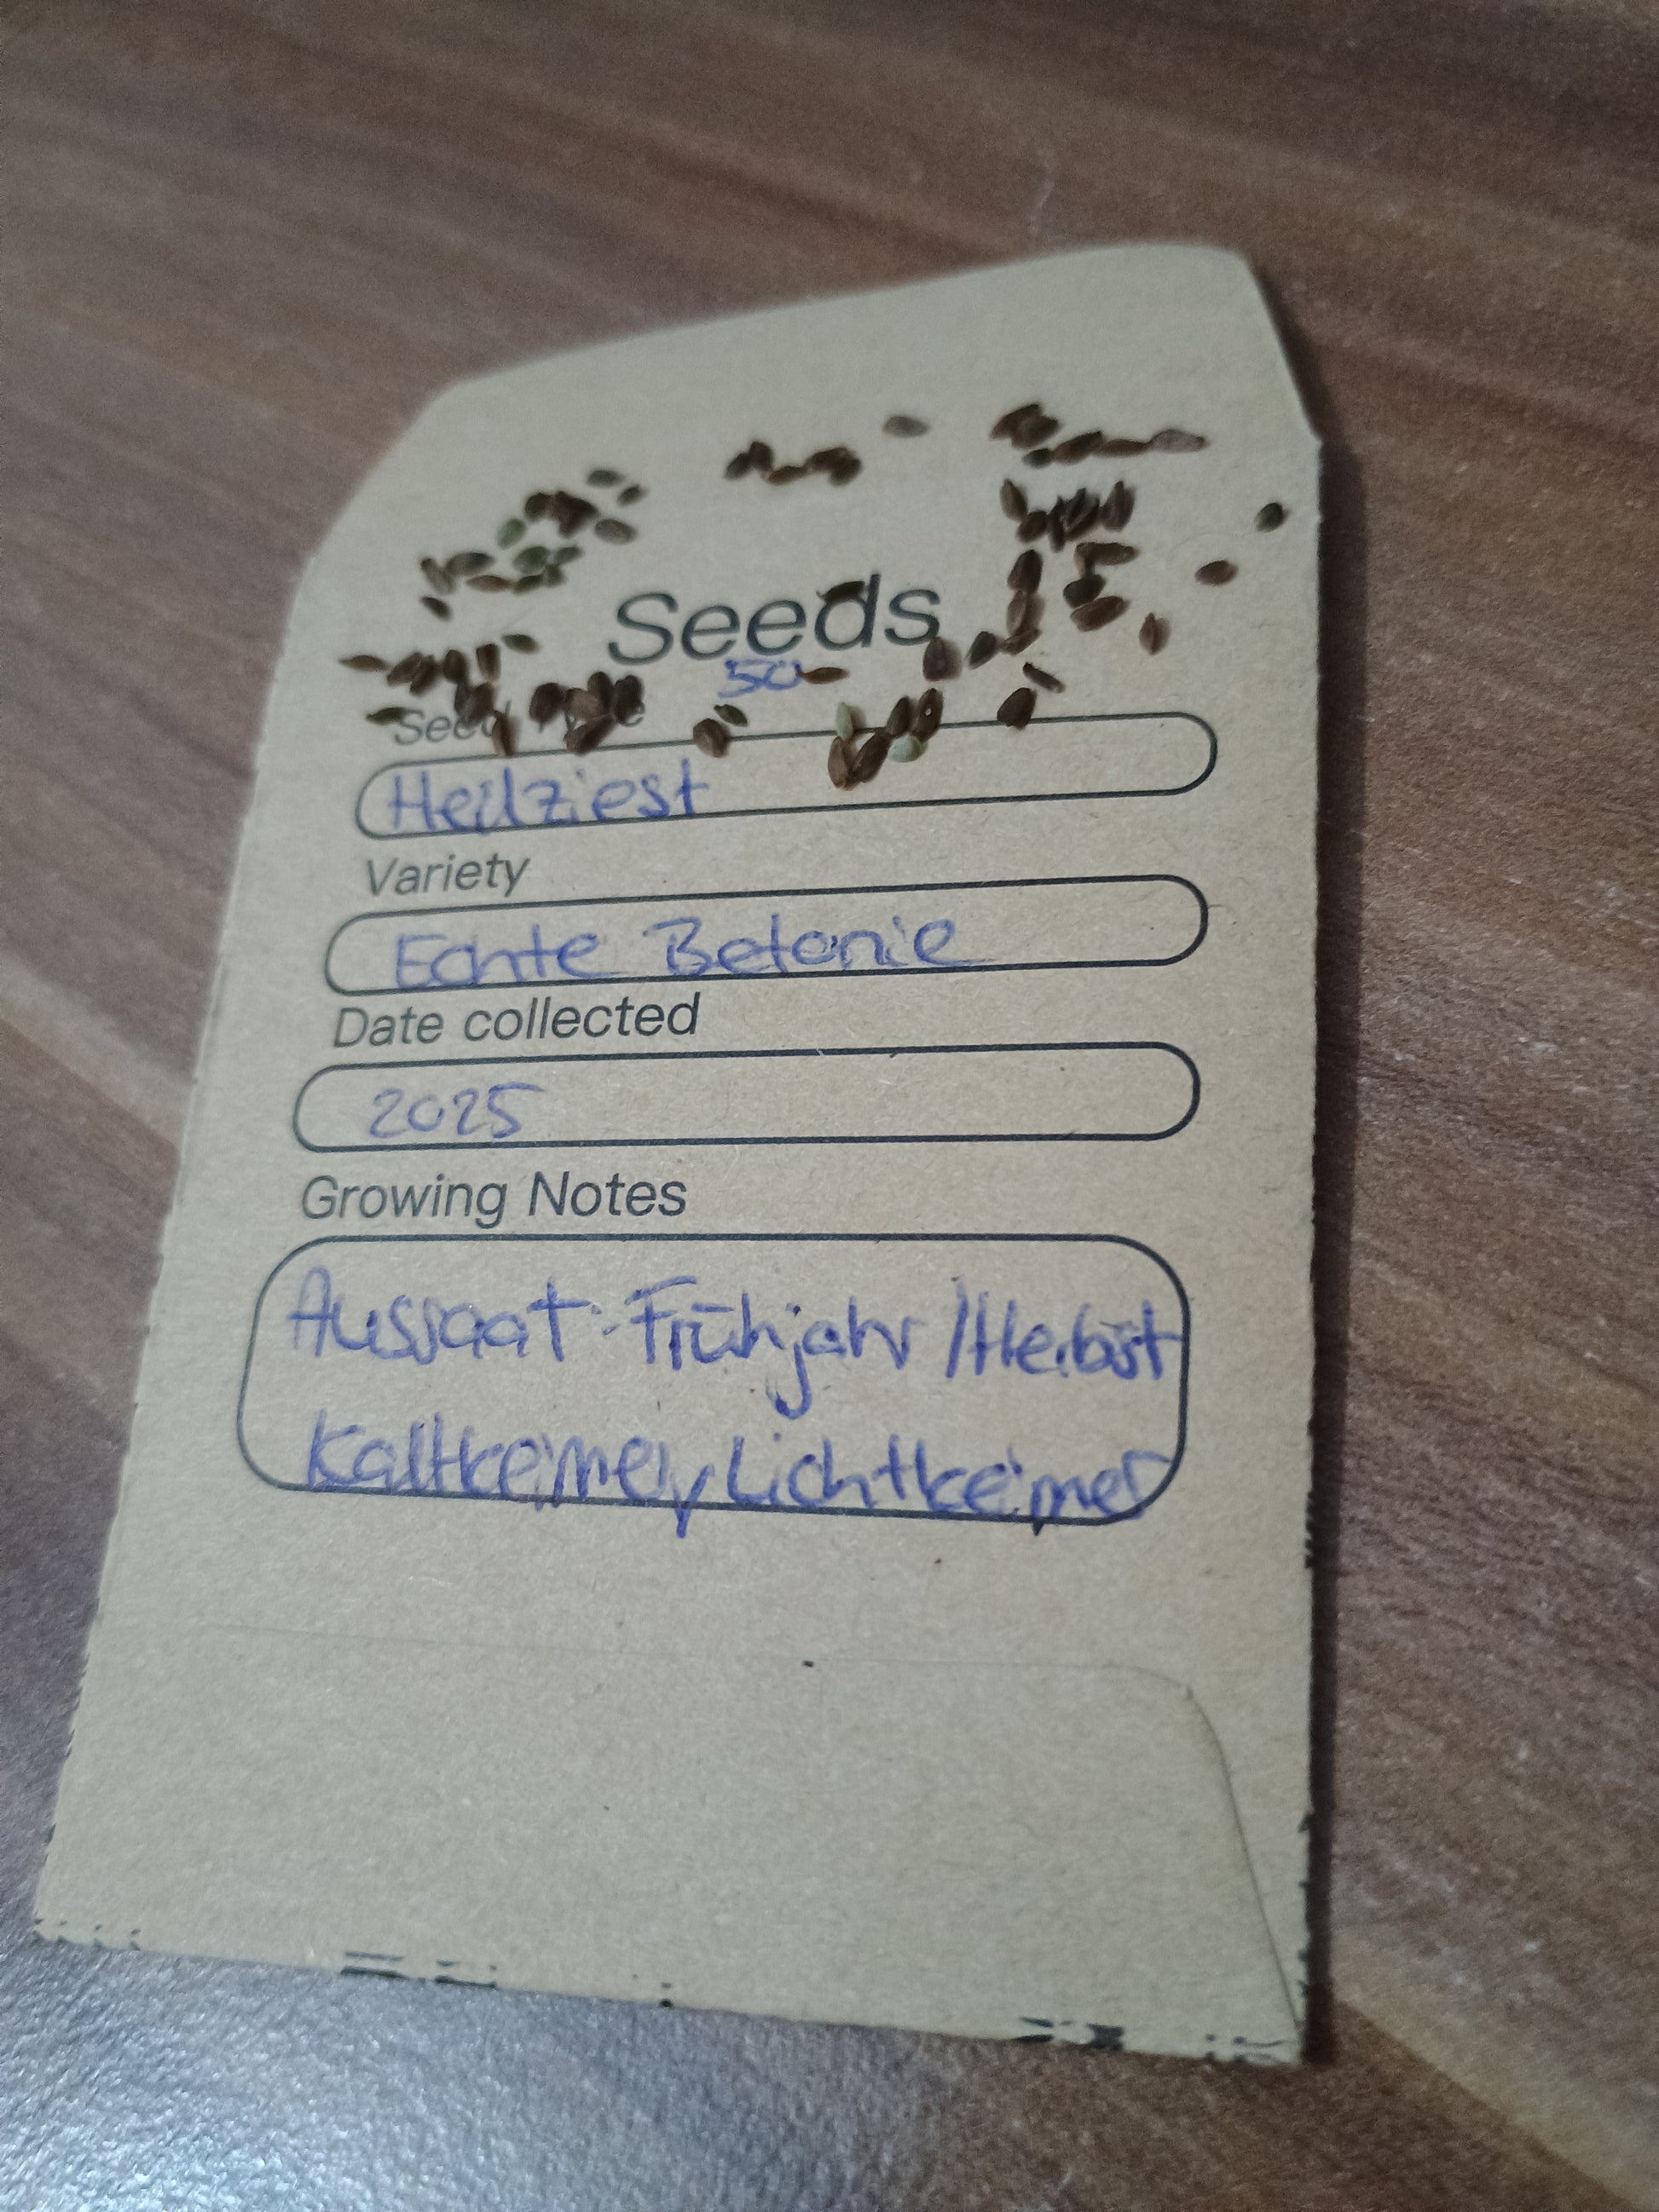 Seeds
50
Seed Type
Heilziest
Variety
Echte Betonie
Date collected
2025
Growing Notes
Aussaat: Frühjahr/Herbst
Kaltkeimer, Lichtkeimer